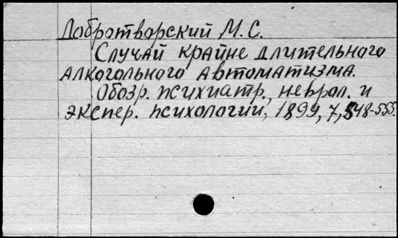 Добротворский М.С.
Случай крайне длительного
алкогольного автоматизма.
Обозр. психиатр., неврол. и
экспер. психологии, 1899, 7, 548-555.